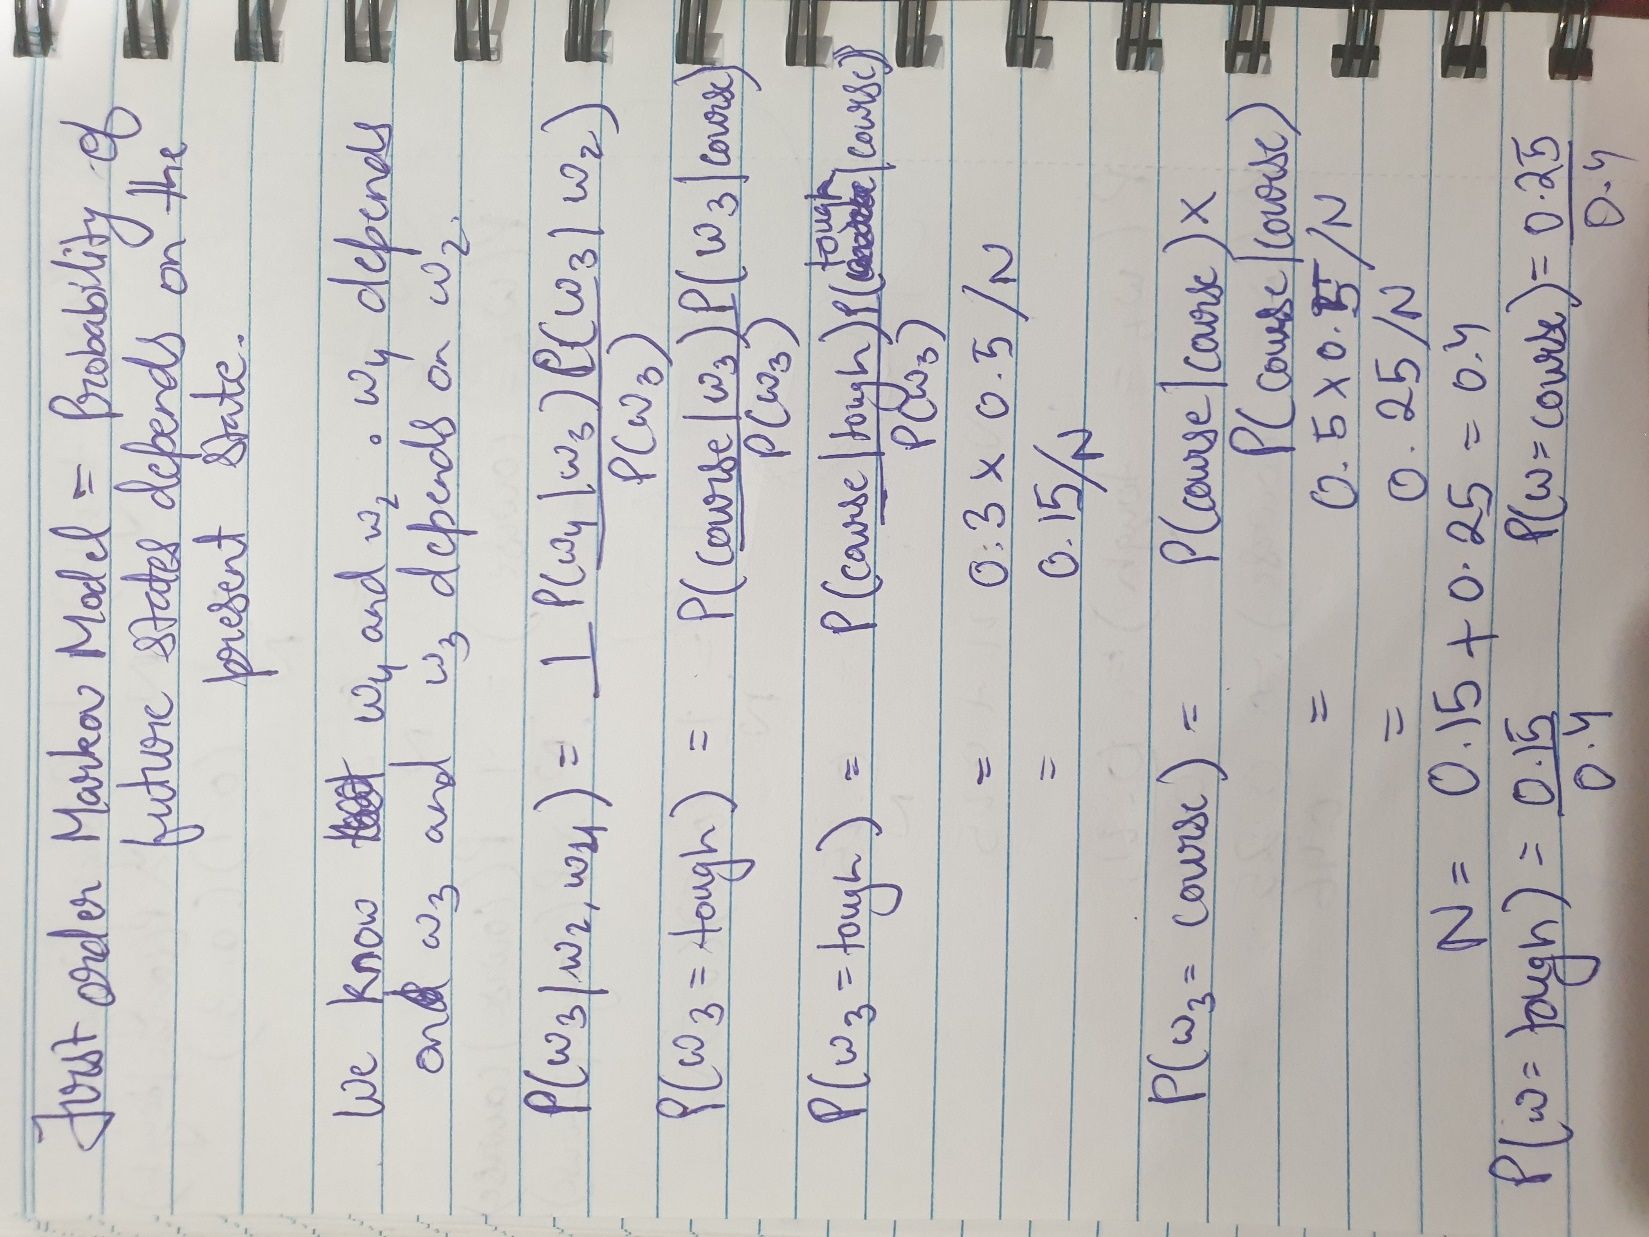 First order Markov Model = Probability of
future states depends on the
present state.
We know w4 and w2 ∴ w4 depends
on w3 and w3 depends on w2.
P(w3|w2,w4) = 1 P(w4|w3)P(w3|w2)
P(w3)
P(w3=tough) = P(course|w3)P(w3|course)
P(w3)
P(w3=tough) = P(course|tough)P(tough|course)
P(w3)
= 0.3 x 0.5/N
= 0.15/N
P(w3=course) = P(course|course) x
P(course|course)
= 0.5 x 0.5/N
= 0.25/N
N = 0.15 + 0.25 = 0.4
P(w=tough) = 0.15/0.4 P(w=course) = 0.25/0.4